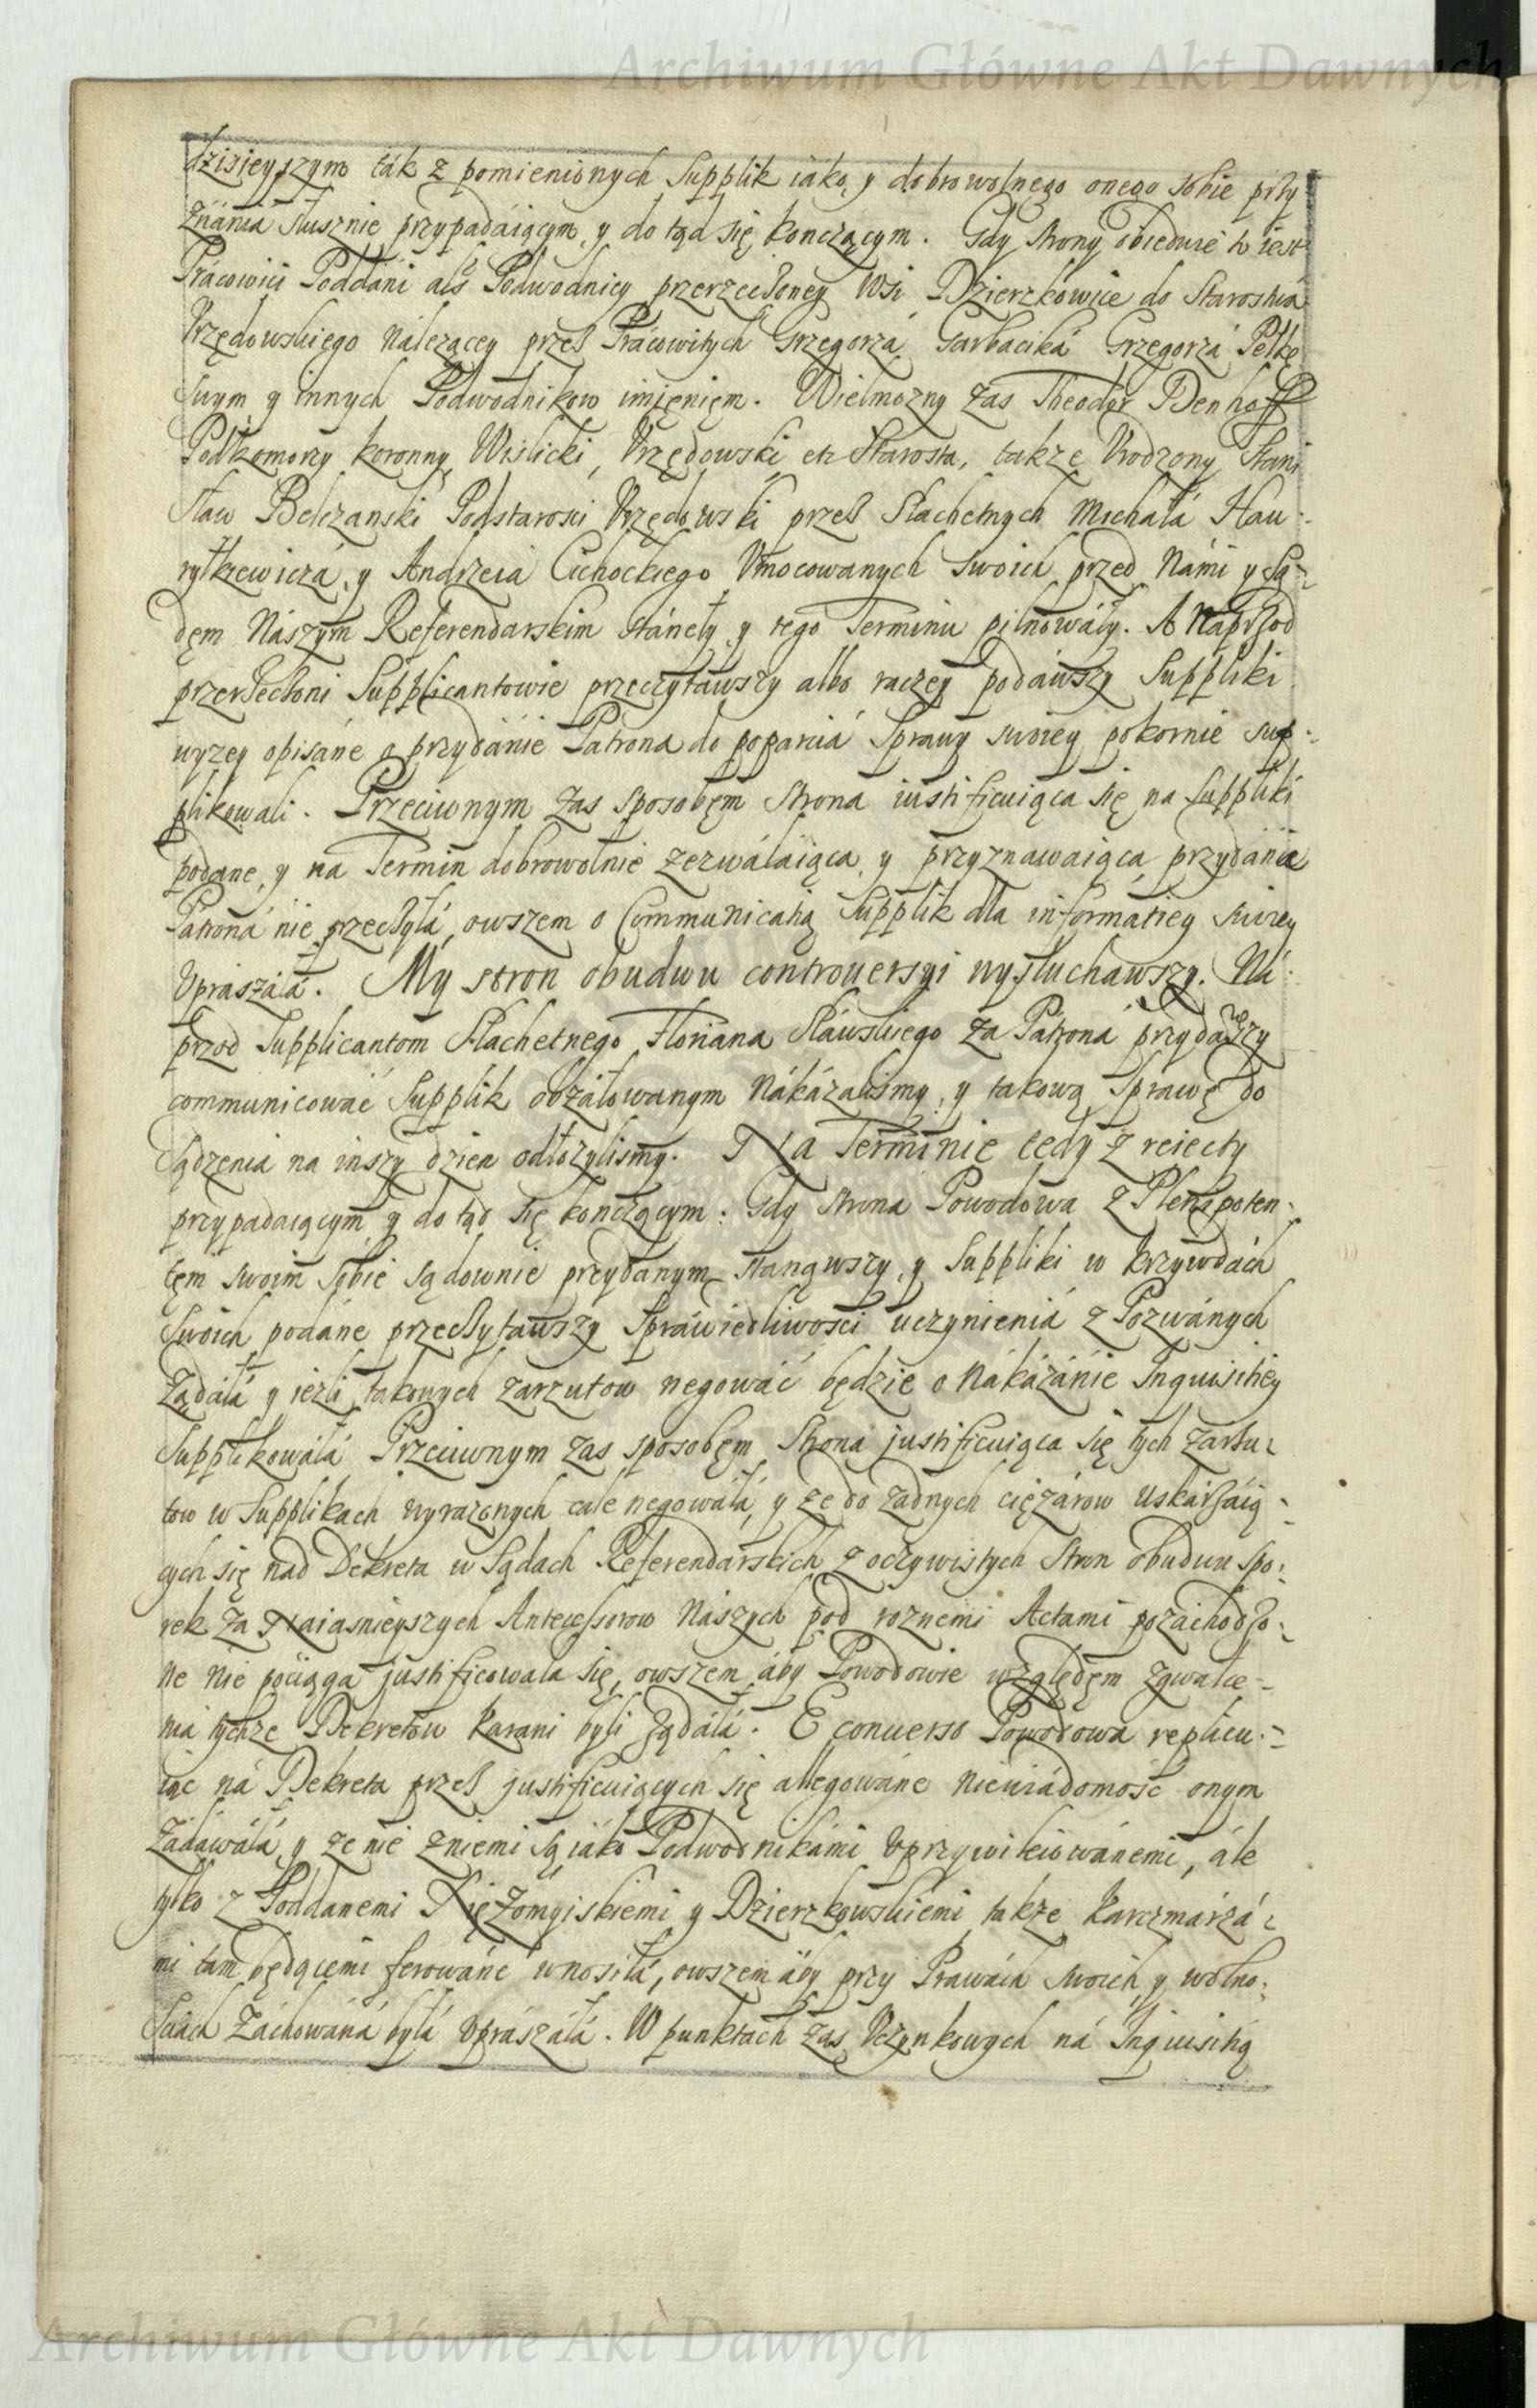 Archiwum Główne Akt Dawnych
dzisieyszym ták z pomienionych Supplik iáko, y dobrowolnego onego sobie przy
znánia słusznie przypadáiącym, y do tąd się kończącym. Gdy strony obiedwie to iest
Prácowici Poddáni als Podwodnicy przerzeczoney Wsi Dzierzkowice do Starostwá
Vrzędowskiego nalezącey przez Prácowitych Grzegorzá Garbaciká Grzegorzá Petkę
swym y innych Podwodnikow imięnięm. Wielmozny zas Theodor Denhoff
Podkomorzy koronny, Wislicki, Vrzędowski etc Starosta, takze Vrodzony Stani
sław Bełczanski Podstarosci Vrzędowski przez Słachetnych Michałá Hau-
ryłkiewiczá, y Andrzeia Cichockiego Vmocowanych swoich przed Námi y Są-
dęm Nászym Referendarskim stánęły y tego Terminu pilnowáły. A Naprzod
przerzeczoni Supplicantowie przeczytawszy albo raczey podawszy Suppliki
wyzey opisáne o przydánie Patrona do poparciá Sprawy swoiey pokornie sup-
plikowali. Przeciwnym zas sposobęm strona iustificuiąca się na suppliki
podane, y na Termin dobrowolnie zezwaláiąca, y przyznawaiąca przydánia
Patroná nie przeczyłá, owszem o Communicatią Supplik dla informatiey swoiey
Vpraszáłá. My stron obudwu controuersyi wysłuchawszy. Ná-
przod Supplicantom Słachetnego Floriana Sławskiego za Pátroná przydawszy
communicowáć Supplik obzáłowanym Nákázalismy, y takową Sprawę do
Sądzenia na inszy dzien odłozylismy. Na Terminie tedy z reiecty
przypadaiącym y do tąd się kończącym: Gdy strona Powodowa z Plenipoten-
tęm swoim sobie sądownie przydanym stanąwszy, y Suppliki w krzywdách
swoich podáne przeczytawszy Spráwiedliwosci uczynieniá z Pozwánych
Ządáłá y iezli takowych zarzutow negowáć będzie o Nákázánie Inquisitiey
Supplikowáłá Przeciwnym zas sposobęm Strona justificuiąca się tych zarzu-
tow w Supplikach wyrazonych cale negowáłá, y ze do zadnych cięzárow uskárzáią-
cych się nad Dekreta w Sądach Referendárskich z oczywistych Stron obudwu spo-
rek za Naiasnieyszych Antecessorow Nászych pod roznemi Actami pozáchodzo-
ne nie pociąga justificowala się, owszem áby Powodowie względęm zgwałce-
nia tychze Dekretow karani byli ządáłá. E conuerso Powodowa replicu-
iąc ná Dekreta przez justificuiących się allegowáne niewiádomość onym
Zádawáłá, y ze nie zniemi są iáko Podwodnikámi Vprzywileiowánemi, ále
tylko z Poddanemi Xięzomyiskiemi y Dzierzkowskiemi takze karczmárzá-
mi tám będącemi ferowáne wnosiłá, owszem áby przy Prawách swoich, y wolno-
sciách záchowáná byłá Vprászáłá. W punktach zas Vczynkowych ná Inquisitią
Archiwum Główne Akt Dawnych